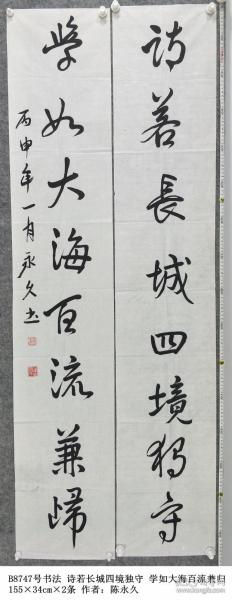 詩若長城四境獨守
學如大海百流兼歸
丙申年一月永久书
B8747号书法 诗若长城四境独守 学如大海百流兼归
155×34cm×2条 作者：陈永久